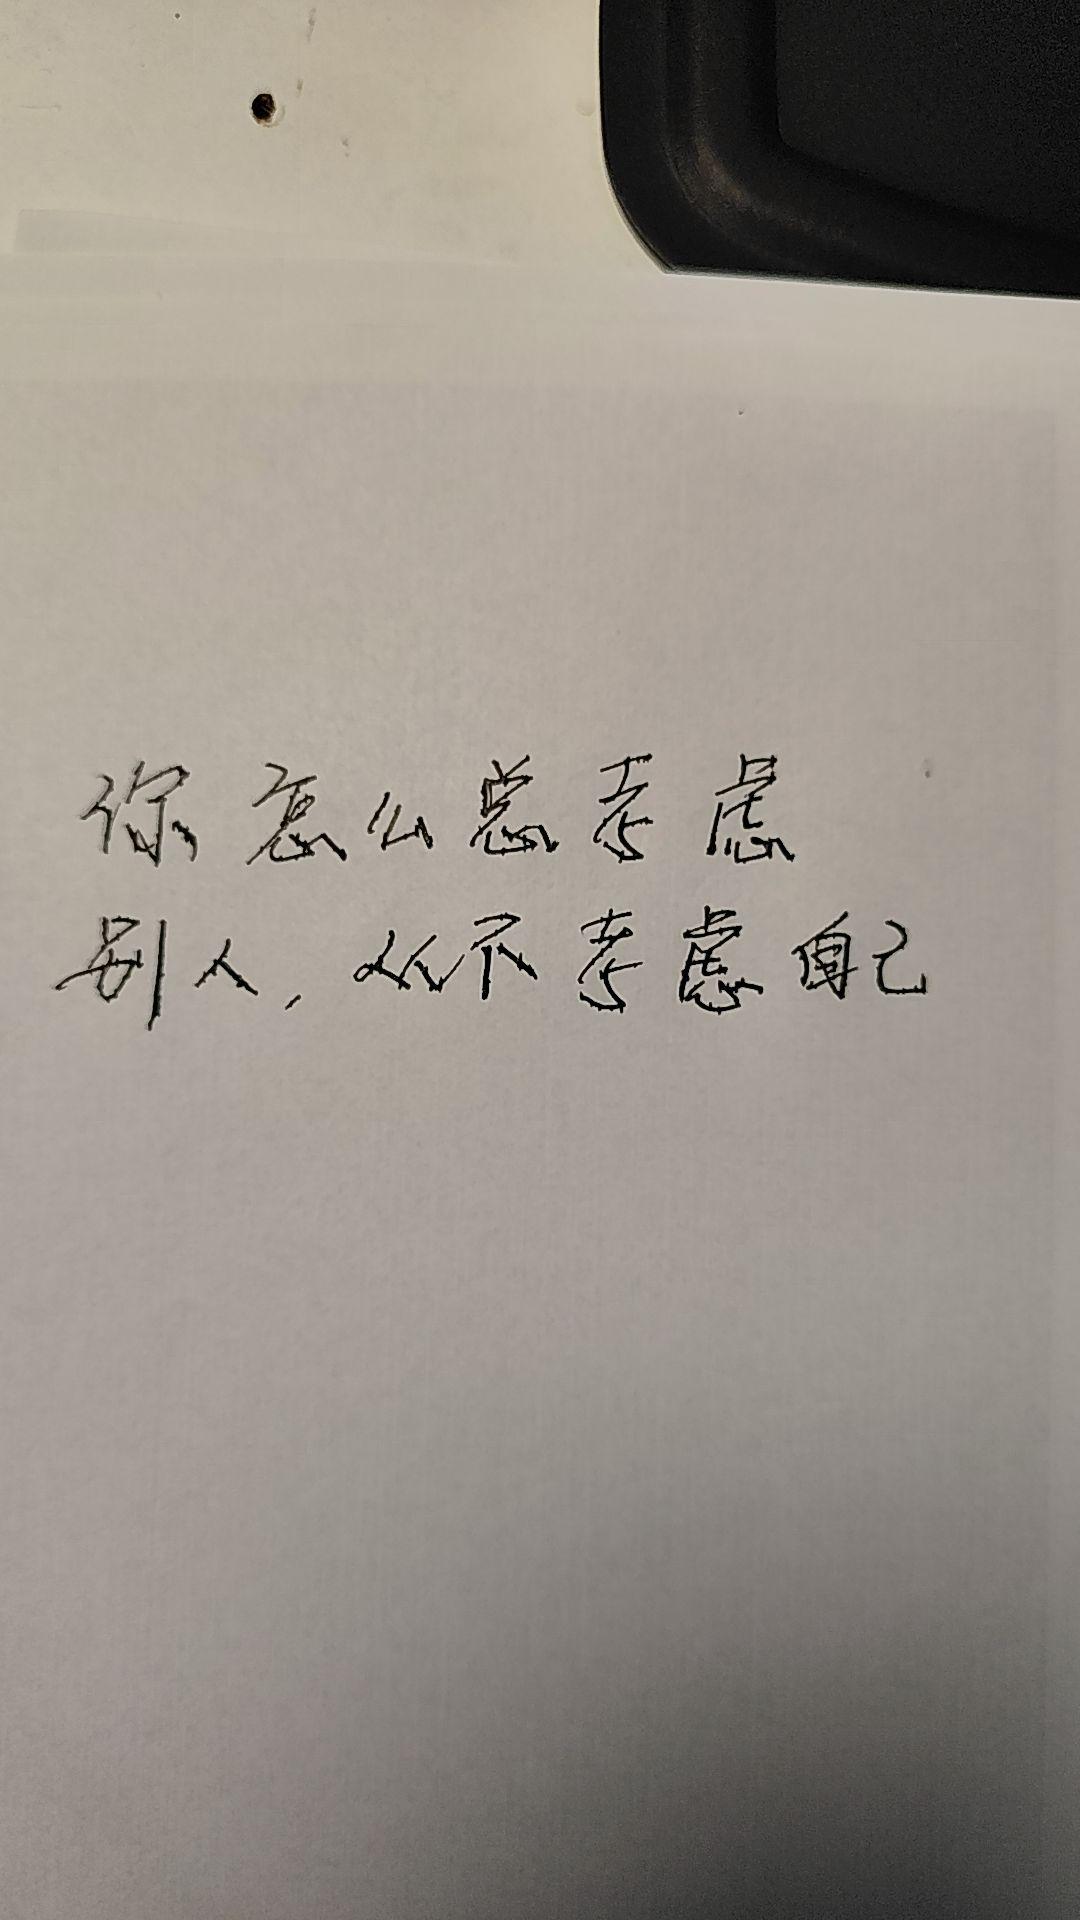 你怎么总考虑
别人，从不考虑自己